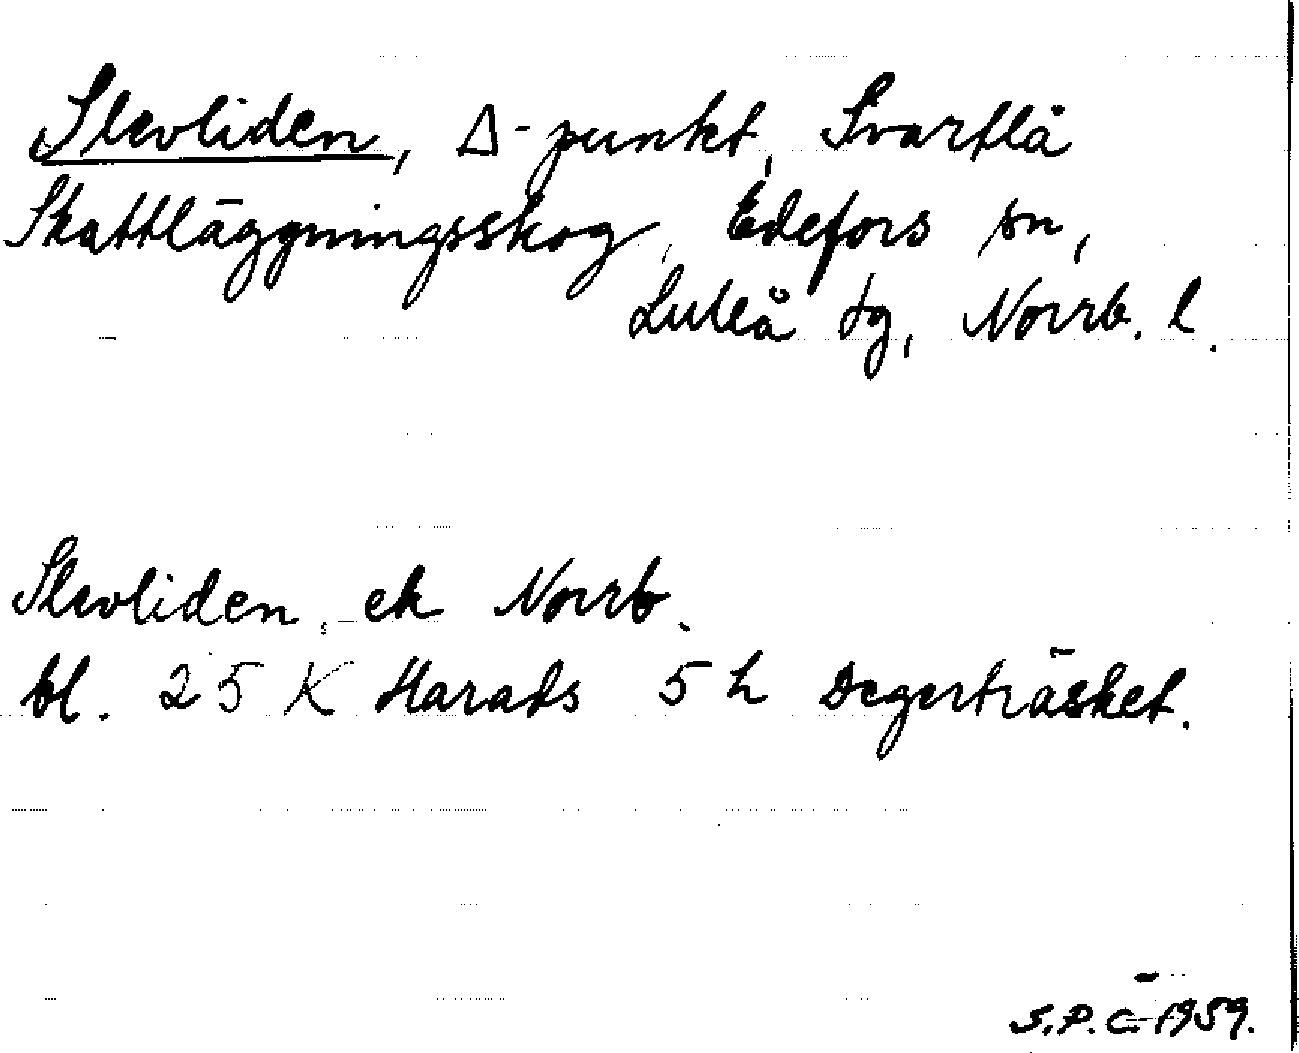 Slevliden, Δ-punkt, Svartlå
Skattläggningsskog, Edefors sn,
Luleå tg, Norrb. l.
Slevliden, ek Norrb.
bl. 25 K Harads 5 h Degerträsket.
S.P.C. 1959.